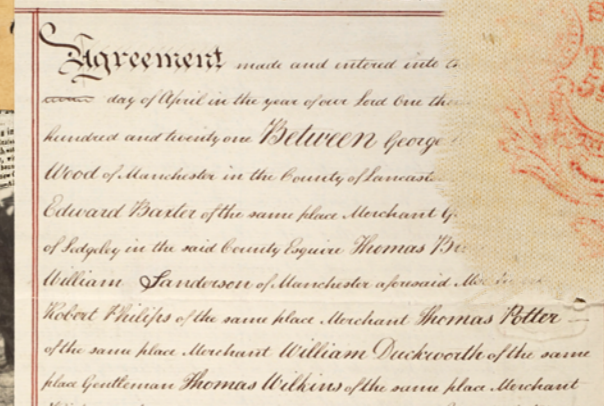 Agreement made and intered into
day of April in the year of our Lord One
hundred and twenty one Between George
Wood of Manchester in the County of
Edward Baxter of the same place Merchant
of Sedgeley in the said County Esquire Thomas
William Sanderson of Manchester aforesaid
Robert Philips of the same place Merchant Thomas Potter
of the same place Merchant William Duckworth of the same
place Gentleman Thomas Wilkins of the same place Merchant